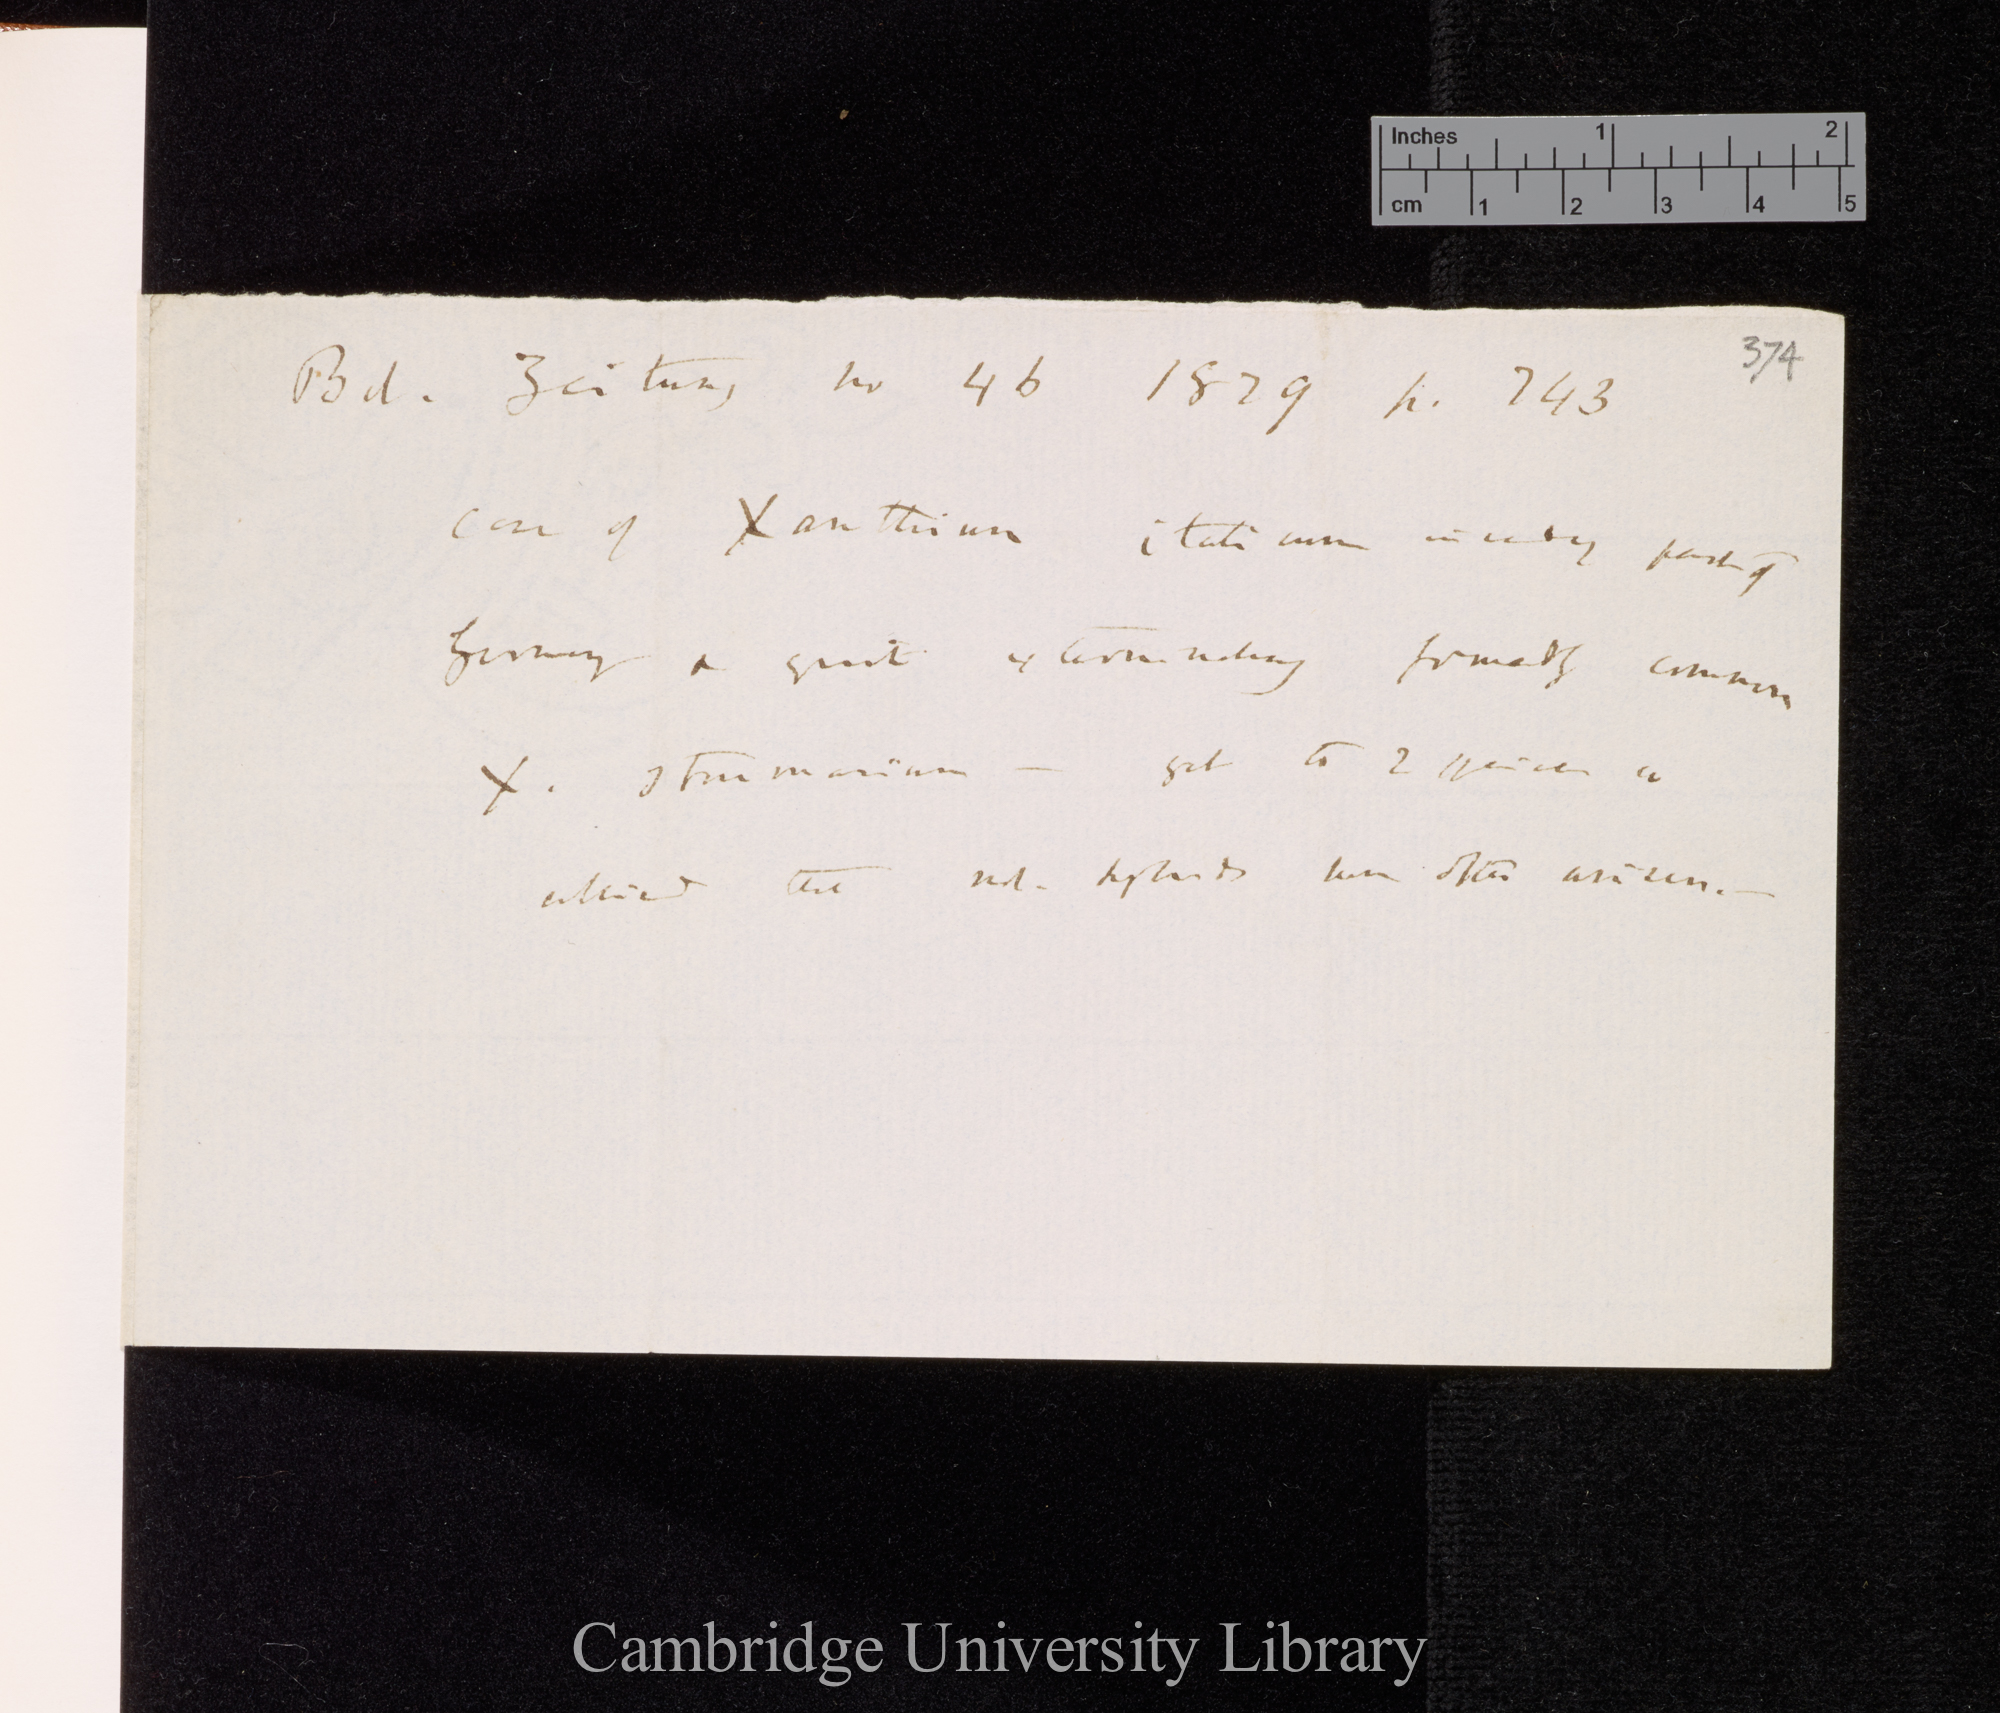 Inches 1 2
cm 1 2 3 4 5
374
Bot. Zeitung no 46 1879 p. 743
case of Xanthium italicum invading parts of
Germany & great exterminating formerly common
X. strumarium — yet to 2 species so
allied that nat. hybrids have often arisen. —
Cambridge University Library